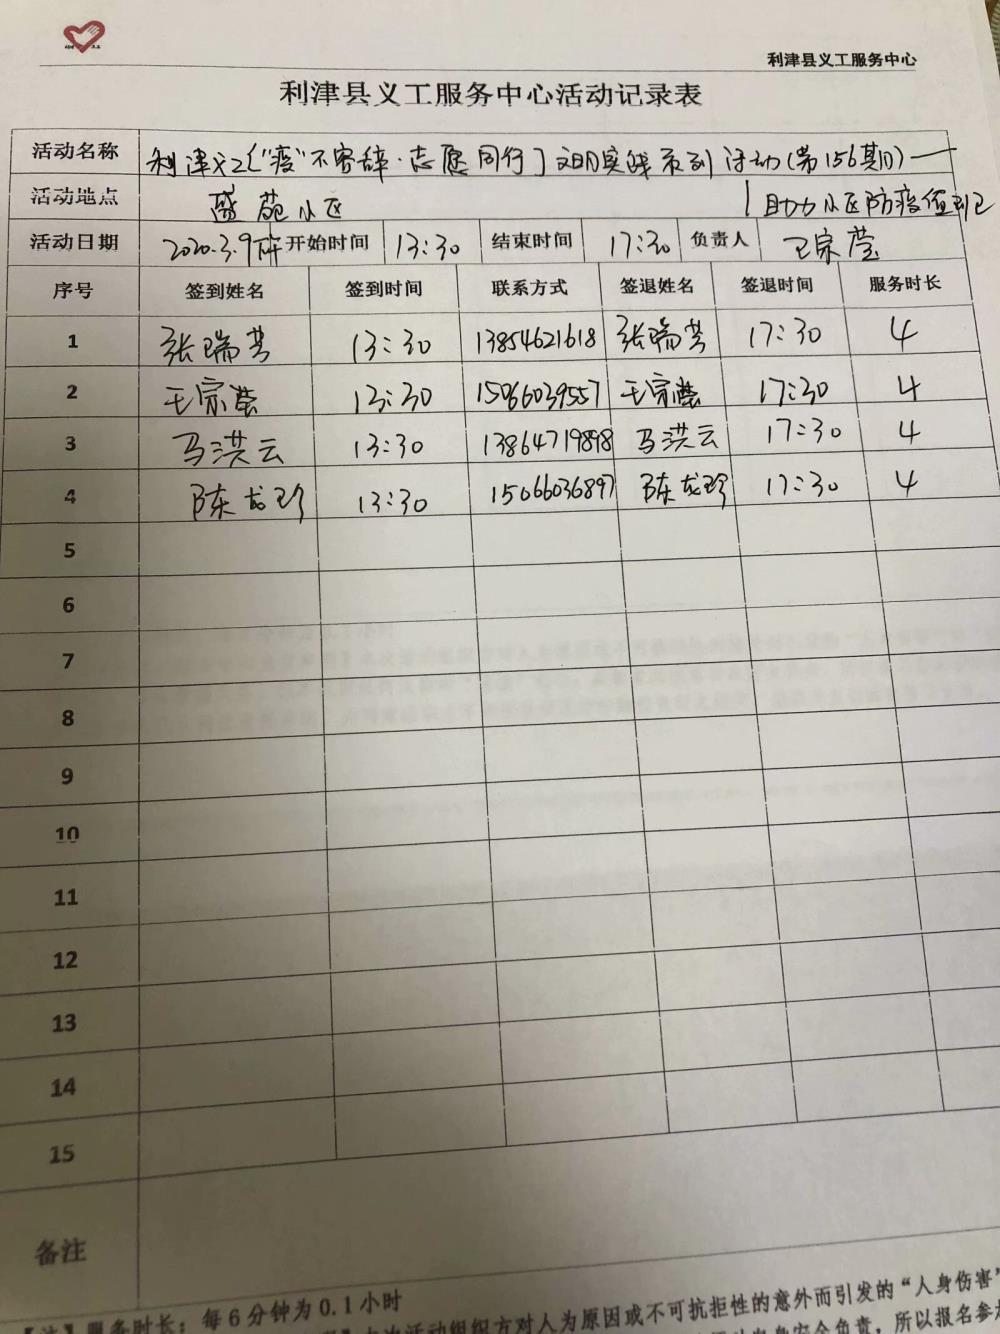 利津县义工服务中心
利津县义工服务中心活动记录表
活动名称 利津义工〔"疫"不容辞·志愿同行〕文明实践系列活动(第156期)——
活动地点 盛苑小区 助力小区防疫值勤
活动日期 2020.3.9 开始时间 13:30 结束时间 17:30 负责人 王宗莹
序号 签到姓名 签到时间 联系方式 签退姓名 签退时间 服务时长
1 张瑞芳 13:30 13854621618 张瑞芳 17:30 4
2 王宗莹 13:30 15066039557 王宗莹 17:30 4
3 马洪云 13:30 13864719898 马洪云 17:30 4
4 陈龙珍 13:30 15066036897 陈龙珍 17:30 4
5
6
7
8
9
10
11
12
13
14
15
备注
【注】服务时长：每6分钟为0.1小时
本次活动组织方对人为原因或不可抗拒性的意外而引发的"人身伤害"
自身安全负责，所以报名参加